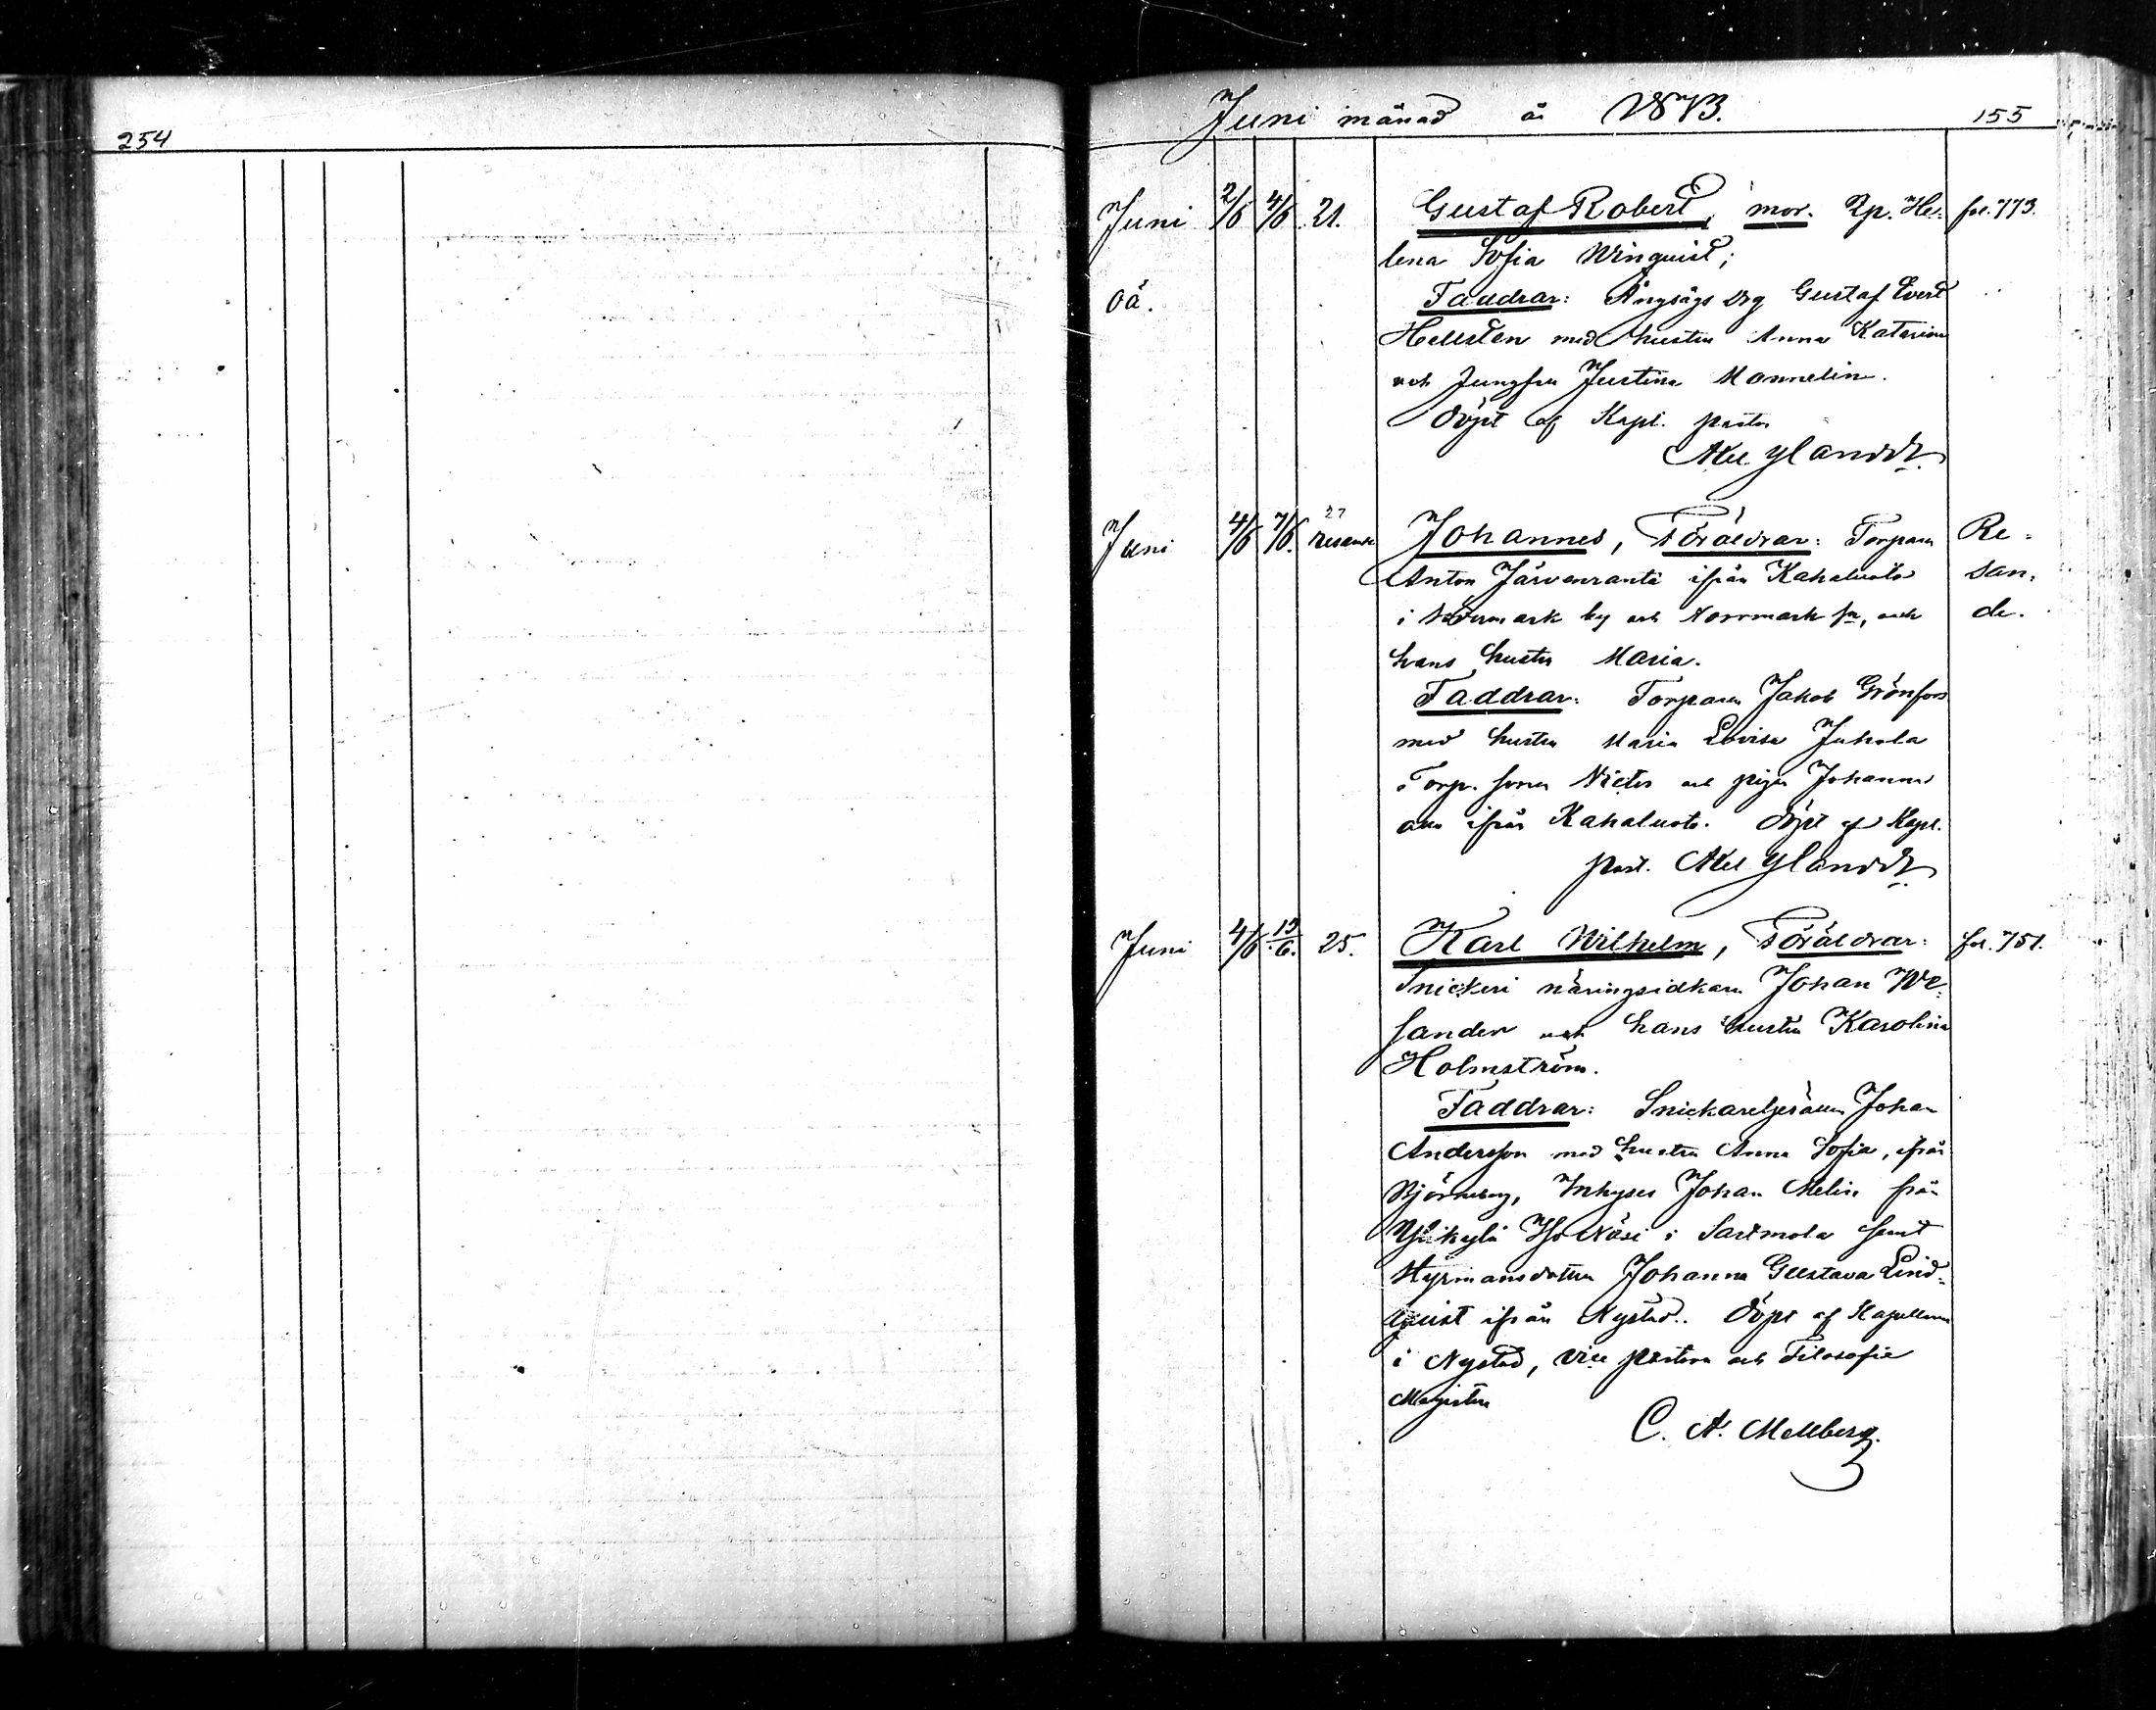 254
Juni månad år 1873. 155
Juni 2/6 4/6 21. Gustaf Robert, mor. Lp. He- fol. 773.
lena Sofia Winquist;
oä. Faddrar: Ångsågs drg Gustaf Evert
Hellsten med hustru Anna Katarina
och Jungfru Justina Monnelin.
döpt af Kapl. pastor
Axel Ylandt
27
Juni 4/6 7/6. resande Johannes, Föräldrar: Torparen Re-
Anton Järvenranta ifrån Kahaluoto san-
i Södermark by och Norrmark sn, och de.
hans hustru Maria.
Faddrar: Torparen Jakob Grönfors
med hustru Maria Lovisa Juhola
Torp. sonen Victor och pigan Johanna
alla ifrån Kahaluoto. döpt af Kapl.
past. Axel Ylandt
Juni 4/6 15/6. 25. Karl Wilhelm, Föräldrar: fol. 751.
Snickeri näringsidkaren Johan We-
sander och hans hustru Karolina
Holmström.
Faddrar: Snickaregesällen Johan
Andersson med hustru Anna Sofia, ifrån
Björneborg, Inhyses Johan Melin från
Yläkylä Näsi i Sastmola samt
Styrmansdottren Johanna Gustava Lind-
quist ifrån Nystad. döpt af Kapellanen
i Nystad, vice pastorn och Filosofie
Magistern
C. A. Mellberg.